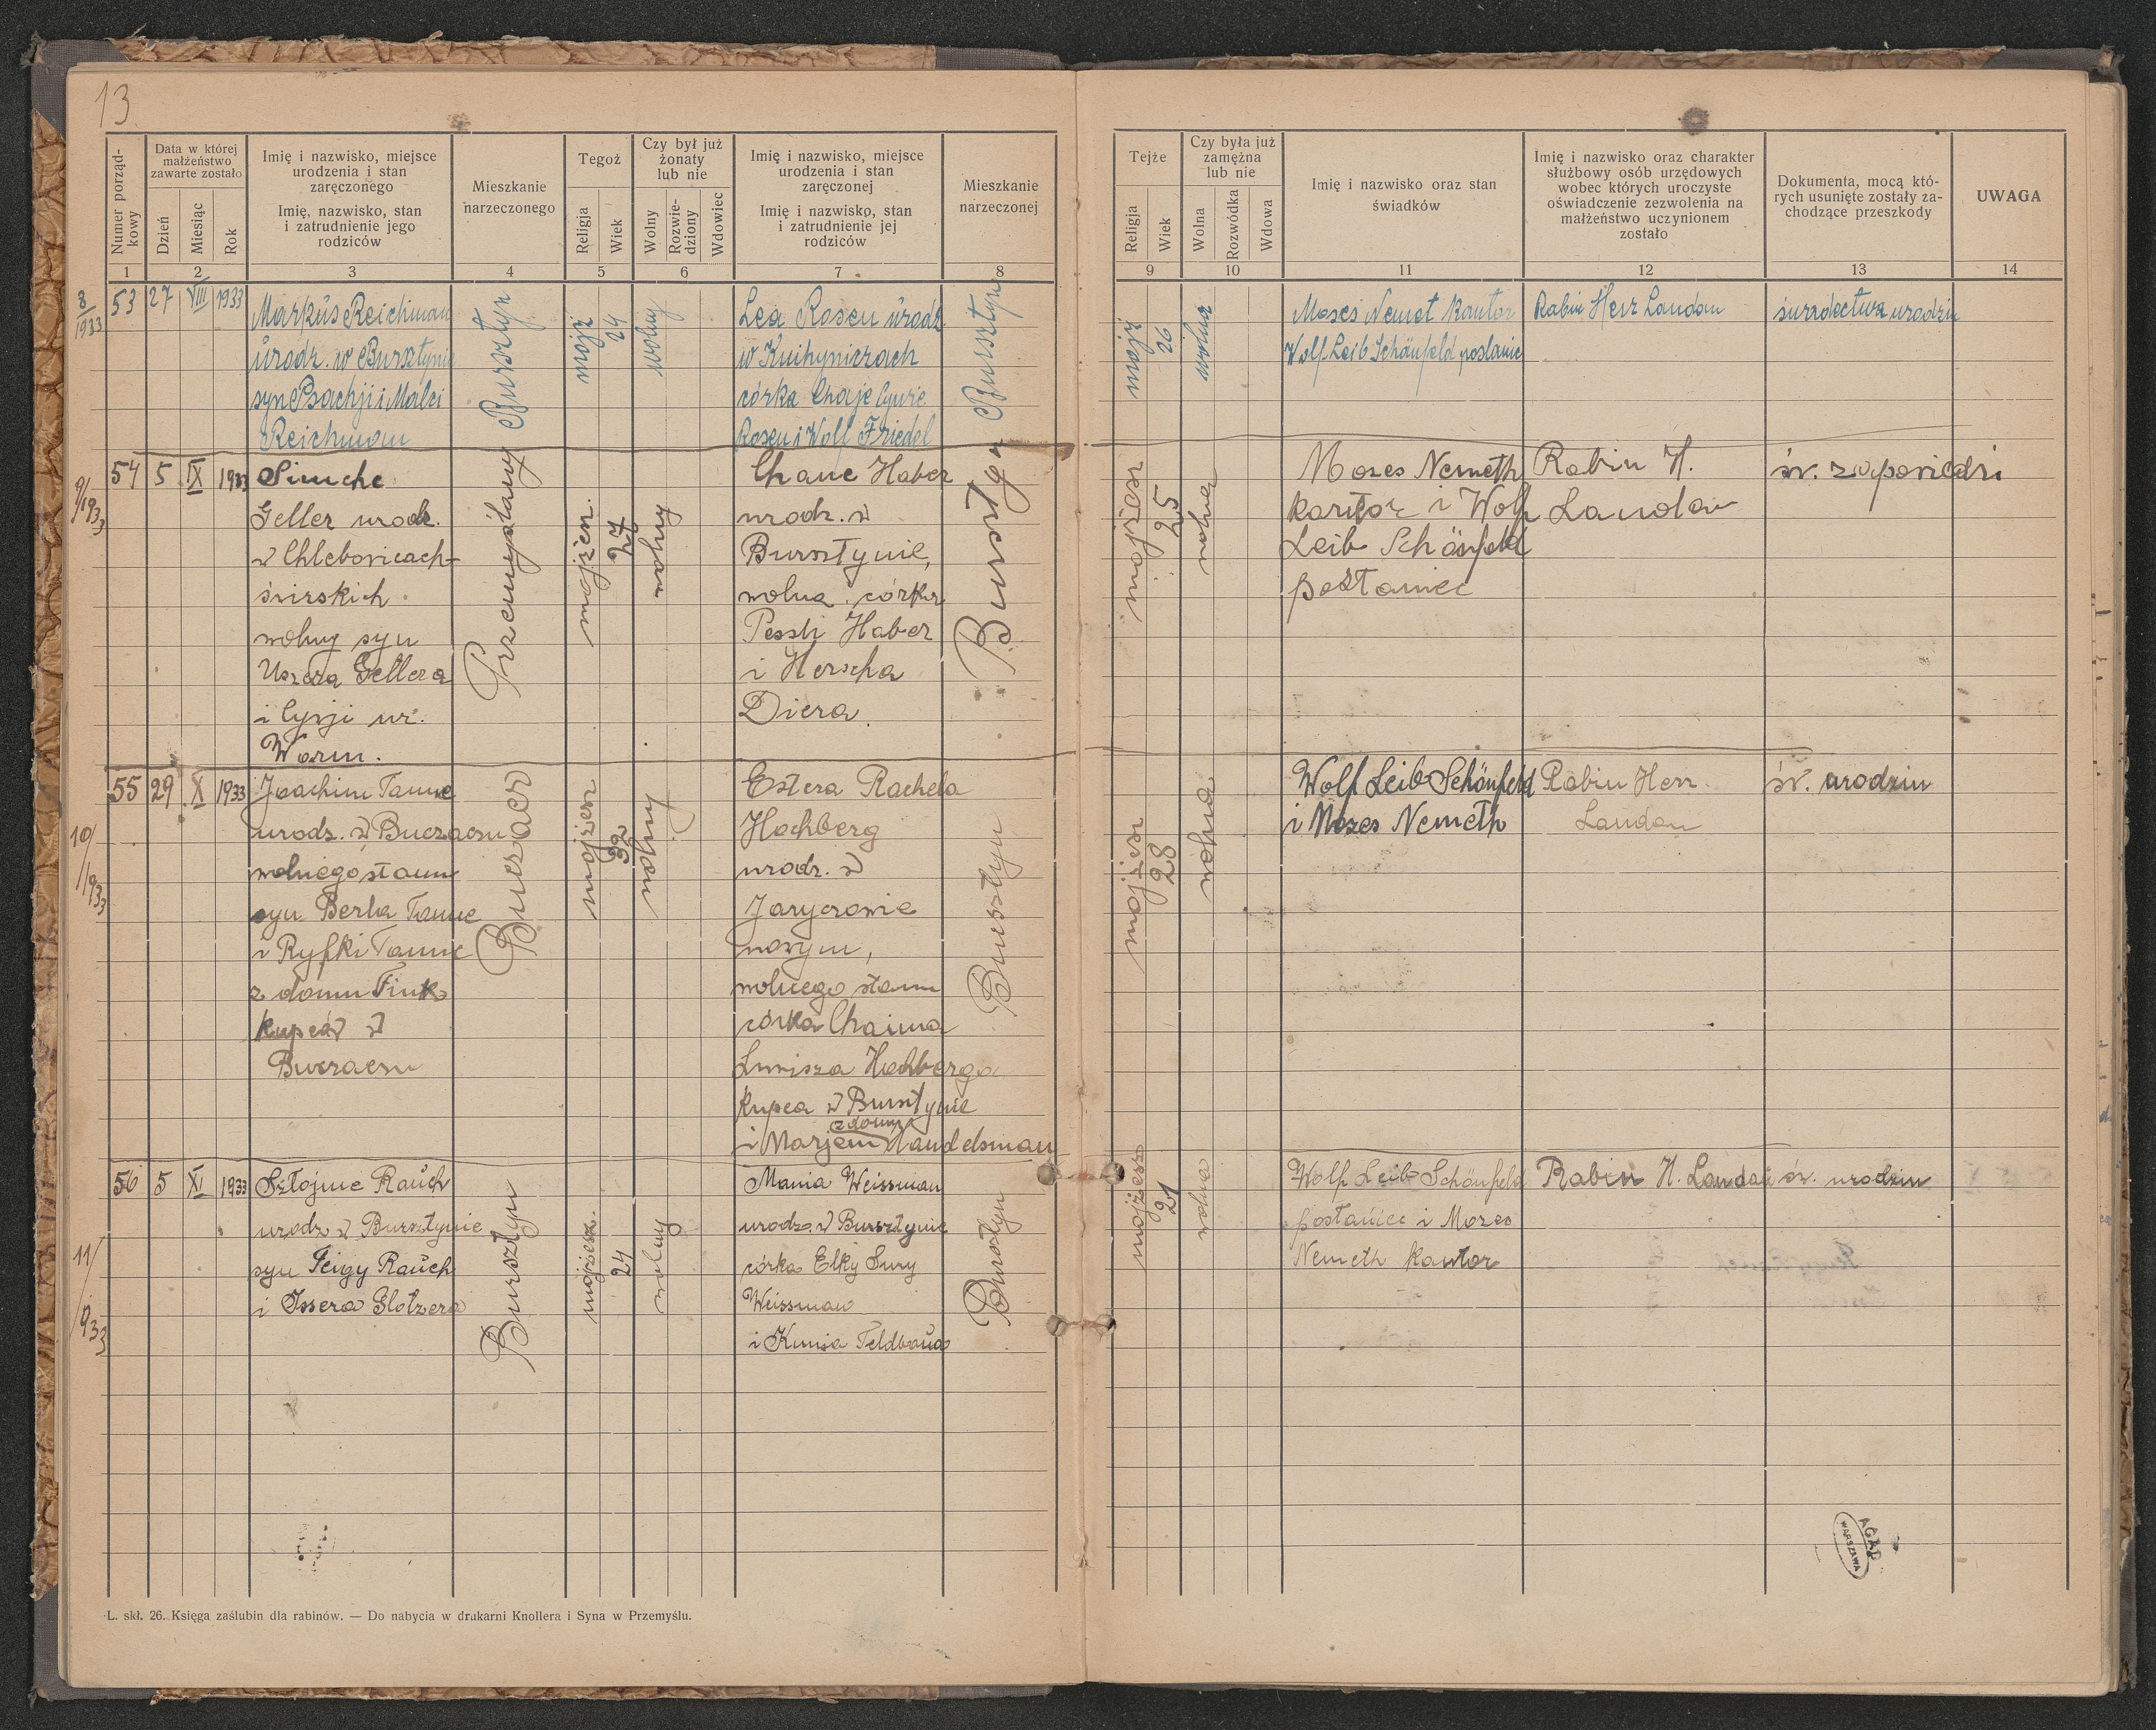 13
Numer porząd-
kowy
Data w której
małżeństwo
zawarte zostało
Dzień
Miesiąc
Rok
Imię i nazwisko, miejsce
urodzenia i stan
zaręczonego
Imię, nazwisko, stan
i zatrudnienie jego
rodziców
Mieszkanie
narzeczonego
Tegoż
Religja
Wiek
Czy był już
żonaty
lub nie
Wolny
Rozwie-
dziony
Wdowiec
Imię i nazwisko, miejsce
urodzenia i stan
zaręczonej
Imię, nazwisko, stan
i zatrudnienie jej
rodziców
Mieszkanie
narzeczonej
Tejże
Religja
Wiek
Czy była już
zamężna
lub nie
Wolna
Rozwódka
Wdowa
Imię i nazwisko oraz stan
świadków
Imię i nazwisko oraz charakter
służbowy osób urzędowych
wobec których uroczyste
oświadczenie zezwolenia na
małżeństwo uczynionem
zostało
Dokumenta, mocą któ-
rych usunięte zostały za-
chodzące przeszkody
UWAGA
1 2 3 4 5 6 7 8 9 10 11 12 13 14
8/1933
53 27 VIII 1933
Markus Reichman
urodz. w Bursztynie
syn Psachji i Malci
Reichman
Bursztyn
mojż
24
wolny
Lea Rosen urodz
w Knihyniczach
córka Chaje Cywie
Rosen i Wolf Friedel
Bursztyn
mojż
26
wolna
Moses Nemet kantor
Wolf Leib Schönfeld posłaniec
Rabin Herz Landau
świadectwa urodzin
9/1933
54 5 IX 1933
Simche
Geller urodz.
w Chlebowicach-
świrskich
wolny syn
Uszera Gellera
i Cywji ur.
Worm.
Przemyślany
mojżesz.
27
wolny
Chane Haber
urodz. w
Bursztynie,
wolna, córka
Pessli Haber
i Herscha
Diera.
Bursztyn
mojżesz
25
wolna
Mozes Nemeth
kantor i Wolf
Leib Schönfeld
posłaniec
Rabin H.
Landau
św. zapowiedzi
10/1933
55 29 X 1933
Joachim Tanne
urodz. w Buczaczu
wolnego stanu
syn Berla Tanne
i Ryfki Tanne
z domu Fink
kupców w
Buczaczu
Buczacz
mojżesz
32
wolny
Estera Rachela
Hochberg
urodz. w
Jaryczowie
nowym,
wolnego stanu
córka Chaima
Lewisza Hochberga
kupca w Bursztynie
z domu
i Marjem Mandelsman
Bursztyn
mojżesz
28
wolna
Wolf Leib Schönfeld
i Mozes Nemeth
Rabin Herz
Landau
św. urodzin
11/933
56 5 XI 1933
Szlojme Rauch
urodz w Bursztynie
syn Feigy Rauch
i Issera Glotzera
Bursztyn
mojżesz.
24
wolny
Mania Weissman
urodz. w Bursztynie
córka Elky Sury
Weissman
i Kunisa Feldbaua
Bursztyn
mojżesz
21
wolna
Wolf Leib Schönfeld
posłaniec i Mozes
Nemeth kantor
Rabin H. Landau
św. urodzin
AGAD
WARSZAWA
L. skł. 26. Księga zaślubin dla rabinów. — Do nabycia w drukarni Knollera i Syna w Przemyślu.